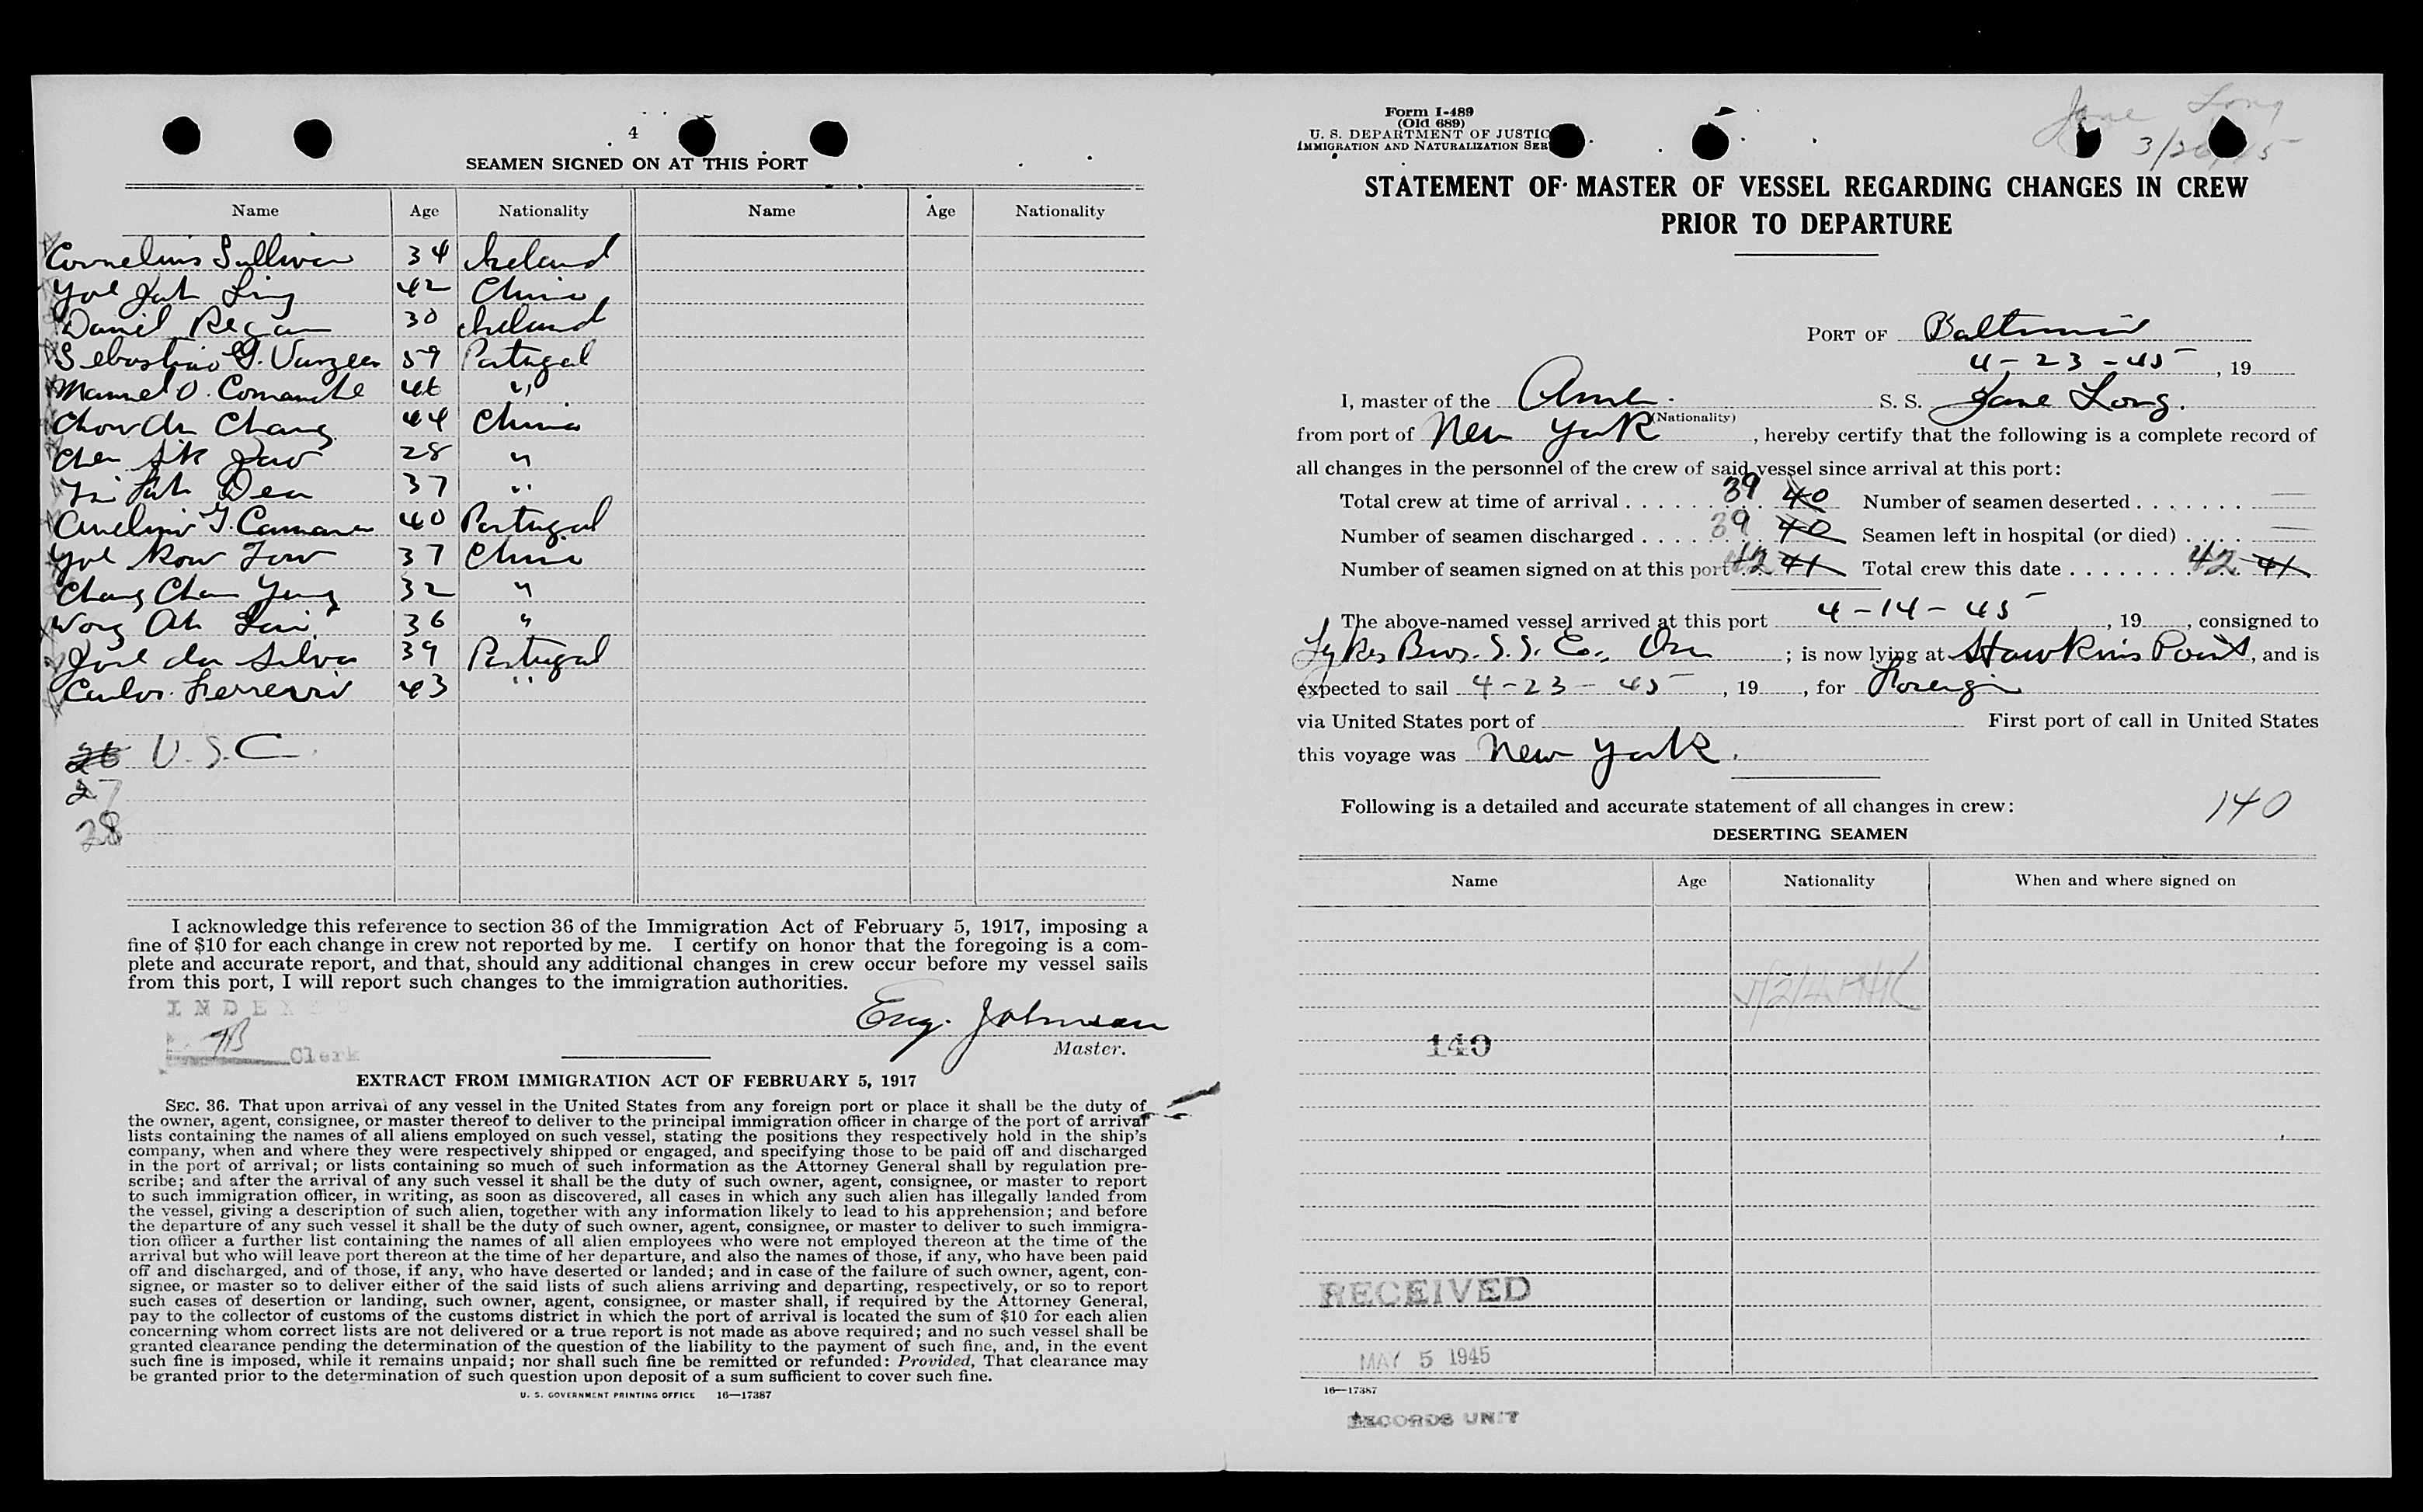 4
SEAMEN SIGNED ON AT THIS PORT
Name Age Nationality Name Age Nationality
Cornelius Sullivan 34 Ireland
42 China
Daniel Regan 30 Ireland
Sebastiao G. 59 Portugal
Manuel O. 46 "
Chang 44 China
28 "
37 "
40 Portugal
37 China
Chang Chan Yung 32 "
Wong Ah 36 "
Jose da Silva 39 Portugal
Carlos Ferreira 43 "
26 U.S.C.
27
28
I acknowledge this reference to section 36 of the Immigration Act of February 5, 1917, imposing a
fine of $10 for each change in crew not reported by me. I certify on honor that the foregoing is a com-
plete and accurate report, and that, should any additional changes in crew occur before my vessel sails
from this port, I will report such changes to the immigration authorities.
INDEXED
Clerk
Eug. Johnson
Master.
EXTRACT FROM IMMIGRATION ACT OF FEBRUARY 5, 1917
SEC. 36. That upon arrival of any vessel in the United States from any foreign port or place it shall be the duty of
the owner, agent, consignee, or master thereof to deliver to the principal immigration officer in charge of the port of arrival
lists containing the names of all aliens employed on such vessel, stating the positions they respectively hold in the ship's
company, when and where they were respectively shipped or engaged, and specifying those to be paid off and discharged
in the port of arrival; or lists containing so much of such information as the Attorney General shall by regulation pre-
scribe; and after the arrival of any such vessel it shall be the duty of such owner, agent, consignee, or master to report
to such immigration officer, in writing, as soon as discovered, all cases in which any such alien has illegally landed from
the vessel, giving a description of such alien, together with any information likely to lead to his apprehension; and before
the departure of any such vessel it shall be the duty of such owner, agent, consignee, or master to deliver to such immigra-
tion officer a further list containing the names of all alien employees who were not employed thereon at the time of the
arrival but who will leave port thereon at the time of her departure, and also the names of those, if any, who have been paid
off and discharged, and of those, if any, who have deserted or landed; and in case of the failure of such owner, agent, con-
signee, or master so to deliver either of the said lists of such aliens arriving and departing, respectively, or so to report
such cases of desertion or landing, such owner, agent, consignee, or master shall, if required by the Attorney General,
pay to the collector of customs of the customs district in which the port of arrival is located the sum of $10 for each alien
concerning whom correct lists are not delivered or a true report is not made as above required; and no such vessel shall be
granted clearance pending the determination of the question of the liability to the payment of such fine, and, in the event
such fine is imposed, while it remains unpaid; nor shall such fine be remitted or refunded: Provided, That clearance may
be granted prior to the determination of such question upon deposit of a sum sufficient to cover such fine.
U. S. GOVERNMENT PRINTING OFFICE 16—17387
Form I-489
(Old 689)
U. S. DEPARTMENT OF JUSTIC
IMMIGRATION AND NATURALIZATION SER
Jane Long
STATEMENT OF MASTER OF VESSEL REGARDING CHANGES IN CREW
PRIOR TO DEPARTURE
PORT OF Baltimore
4-23-45, 19
I, master of the Amer. S. S. Jane Long.
(Nationality)
from port of New York, hereby certify that the following is a complete record of
all changes in the personnel of the crew of said vessel since arrival at this port:
Total crew at time of arrival 39 40 Number of seamen deserted —
Number of seamen discharged 39 40 Seamen left in hospital (or died) —
Number of seamen signed on at this port 42 41 Total crew this date 42 41
The above-named vessel arrived at this port 4-14-45, 19, consigned to
Lykes Bros. S.S. Co., ; is now lying at Hawkins Point, and is
expected to sail 4-23-45, 19, for Foreign
via United States port of First port of call in United States
this voyage was New York.
Following is a detailed and accurate statement of all changes in crew: 140
DESERTING SEAMEN
Name Age Nationality When and where signed on
140
RECEIVED
MAY 5 1945
16—17387
RECORDS UNIT